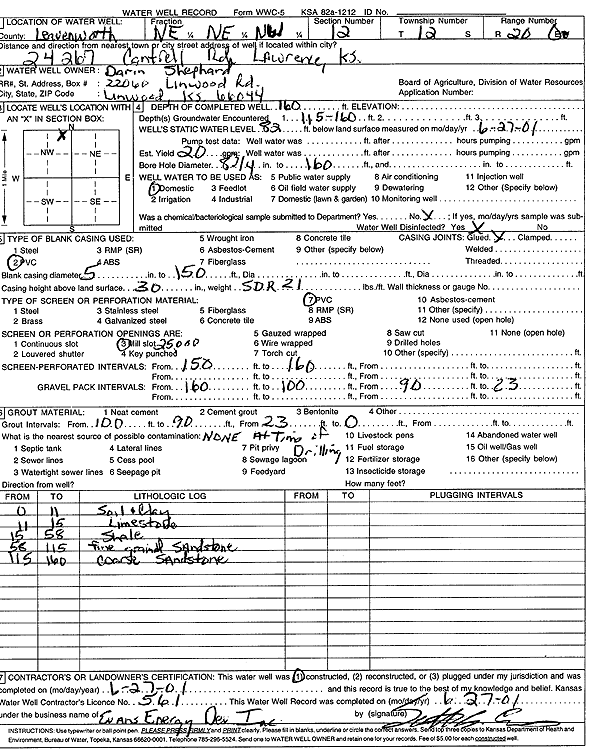 WATER WELL RECORD Form WWC-5 KSA 82a-1212 ID No.
LOCATION OF WATER WELL: Fraction Section Number Township Number Range Number
County: Leavenworth NE ¼ NE ¼ NW ¼ 12 T 12 S R 20 E
Distance and direction from nearest town or city street address of well if located within city?
24267 Cantrell Rd, Lawrence, KS.
2 WATER WELL OWNER: Darin Shephard
RR#, St. Address, Box # : 22060 Linwood Rd. Board of Agriculture, Division of Water Resources
City, State, ZIP Code : Linwood KS 66044 Application Number:
3 LOCATE WELL'S LOCATION WITH AN "X" IN SECTION BOX:
N
X
NW NE
W E
SW SE
S
1 Mile
4 DEPTH OF COMPLETED WELL 160 ft. ELEVATION:
Depth(s) Groundwater Encountered 1. 115-160 ft. 2. ft. 3. ft.
WELL'S STATIC WATER LEVEL 82 ft. below land surface measured on mo/day/yr 6-27-01
Pump test data: Well water was ft. after hours pumping gpm
Est. Yield 20 gpm: Well water was ft. after hours pumping gpm
Bore Hole Diameter 8 3/4 in. to 160 ft., and in. to ft.
WELL WATER TO BE USED AS: 5 Public water supply 8 Air conditioning 11 Injection well
1 Domestic 3 Feedlot 6 Oil field water supply 9 Dewatering 12 Other (Specify below)
2 Irrigation 4 Industrial 7 Domestic (lawn & garden) 10 Monitoring well
Was a chemical/bacteriological sample submitted to Department? Yes No X ; If yes, mo/day/yrs sample was submitted Water Well Disinfected? Yes X No
5 TYPE OF BLANK CASING USED: 5 Wrought iron 8 Concrete tile CASING JOINTS: Glued X Clamped
1 Steel 3 RMP (SR) 6 Asbestos-Cement 9 Other (specify below) Welded
2 PVC 4 ABS 7 Fiberglass Threaded
Blank casing diameter 5 in. to 150 ft., Dia in. to ft., Dia in. to ft.
Casing height above land surface 30 in., weight SDR 21 lbs./ft. Wall thickness or gauge No.
TYPE OF SCREEN OR PERFORATION MATERIAL: 7 PVC 10 Asbestos-cement
1 Steel 3 Stainless steel 5 Fiberglass 8 RMP (SR) 11 Other (specify)
2 Brass 4 Galvanized steel 6 Concrete tile 9 ABS 12 None used (open hole)
SCREEN OR PERFORATION OPENINGS ARE: 5 Gauzed wrapped 8 Saw cut 11 None (open hole)
1 Continuous slot 3 Mill slot 6 Wire wrapped 9 Drilled holes
2 Louvered shutter 4 Key punched 7 Torch cut 10 Other (specify) ft.
SCREEN-PERFORATED INTERVALS: From 150 ft. to 160 ft., From ft. to ft.
From ft. to ft., From ft. to ft.
GRAVEL PACK INTERVALS: From 160 ft. to 100 ft., From 90 ft. to 23 ft.
From ft. to ft., From ft. to ft.
6 GROUT MATERIAL: 1 Neat cement 2 Cement grout 3 Bentonite 4 Other
Grout Intervals: From 100 ft. to 90 ft., From 23 ft. to 0 ft., From ft. to ft.
What is the nearest source of possible contamination: NONE At Time of Drilling 10 Livestock pens 14 Abandoned water well
1 Septic tank 4 Lateral lines 7 Pit privy 11 Fuel storage 15 Oil well/Gas well
2 Sewer lines 5 Cess pool 8 Sewage lagoon 12 Fertilizer storage 16 Other (specify below)
3 Watertight sewer lines 6 Seepage pit 9 Feedyard 13 Insecticide storage
Direction from well? How many feet?
FROM TO LITHOLOGIC LOG FROM TO PLUGGING INTERVALS
0 11 Soil & Clay
11 15 Limestone
15 58 Shale
58 115 fine graind Sandstone
115 160 coarse Sandstone
7 CONTRACTOR'S OR LANDOWNER'S CERTIFICATION: This water well was (1) constructed, (2) reconstructed, or (3) plugged under my jurisdiction and was
completed on (mo/day/year) 6-27-01 and this record is true to the best of my knowledge and belief. Kansas
Water Well Contractor's Licence No. 561 This Water Well Record was completed on (mo/day/yr) 6-27-01
under the business name of Evans Energy Dev Inc by (signature)
INSTRUCTIONS: Use typewriter or ball point pen. PLEASE PRESS FIRMLY and PRINT clearly. Please fill in blanks, underline or circle the correct answers. Send top three copies to Kansas Department of Health and
Environment, Bureau of Water, Topeka, Kansas 66620-0001. Telephone 785-296-5524. Send one to WATER WELL OWNER and retain one for your records. Fee of $5.00 for each constructed well.